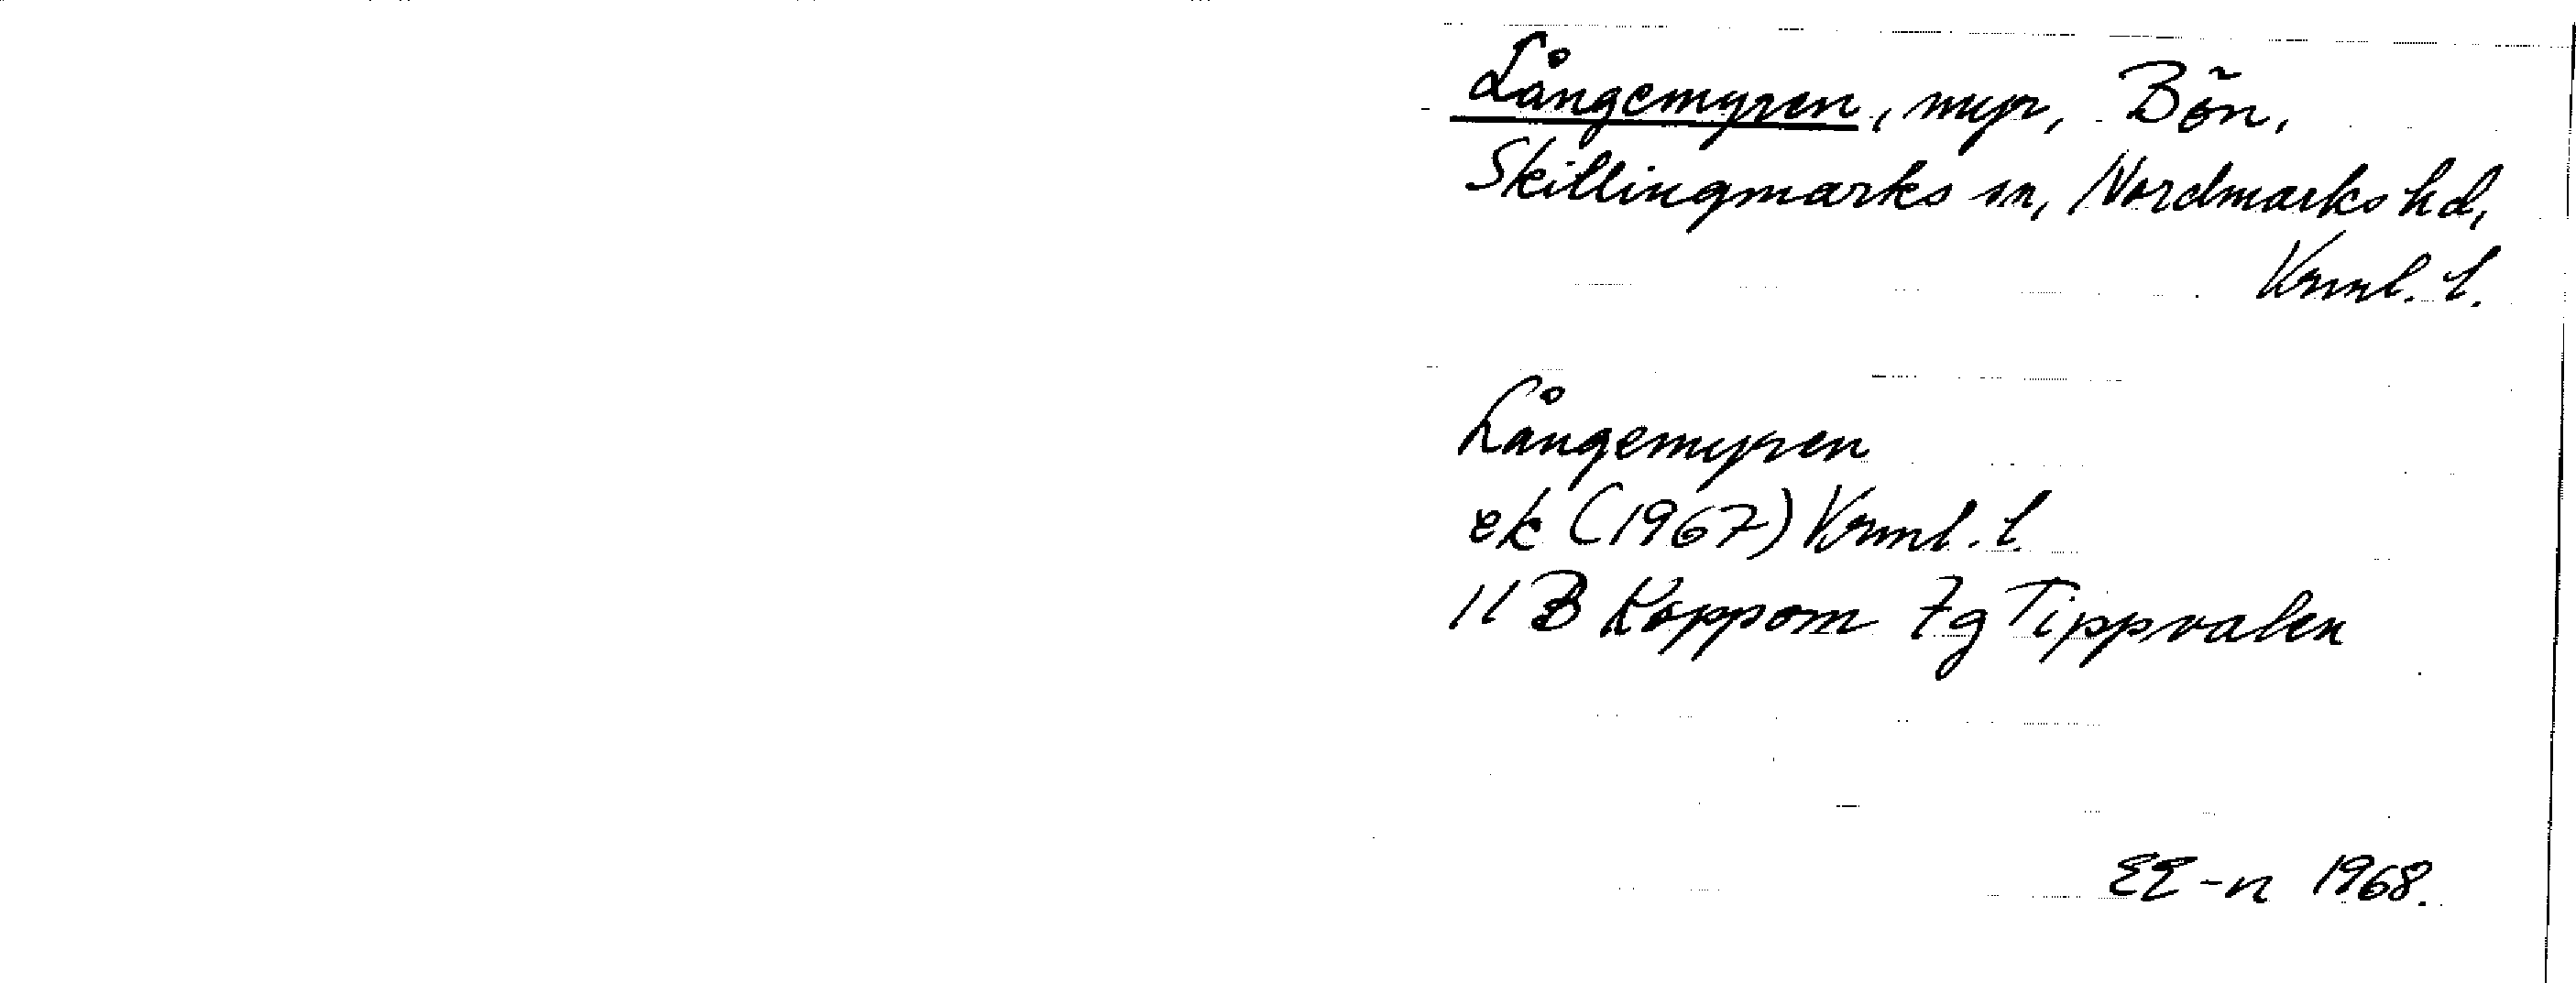 Långemyren, myr, Bön,
Skillingmarks sn, Nordmarks hd,
Vrml. l.
Långemyren
ek (1967) Vrml. l.
11 B Koppom 7g Tippvalen
EE-n 1968.